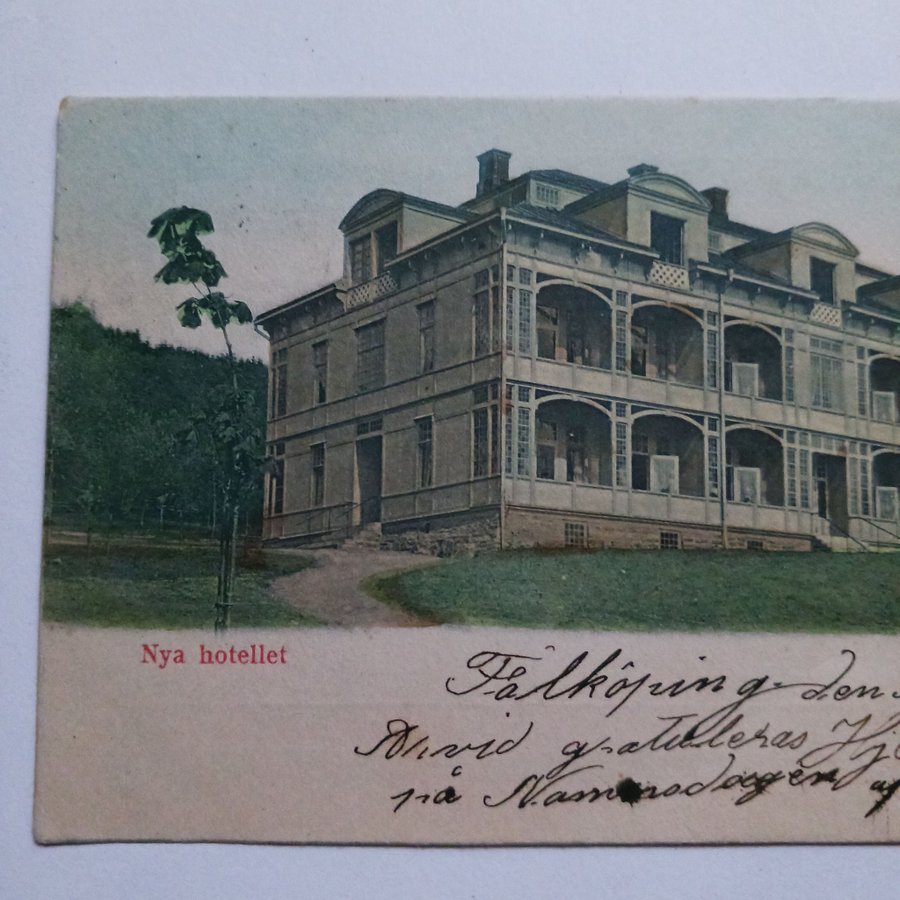 Nya hotellet
Fålköping den
Arvid gratuleras Hj
på Namnsdagen af